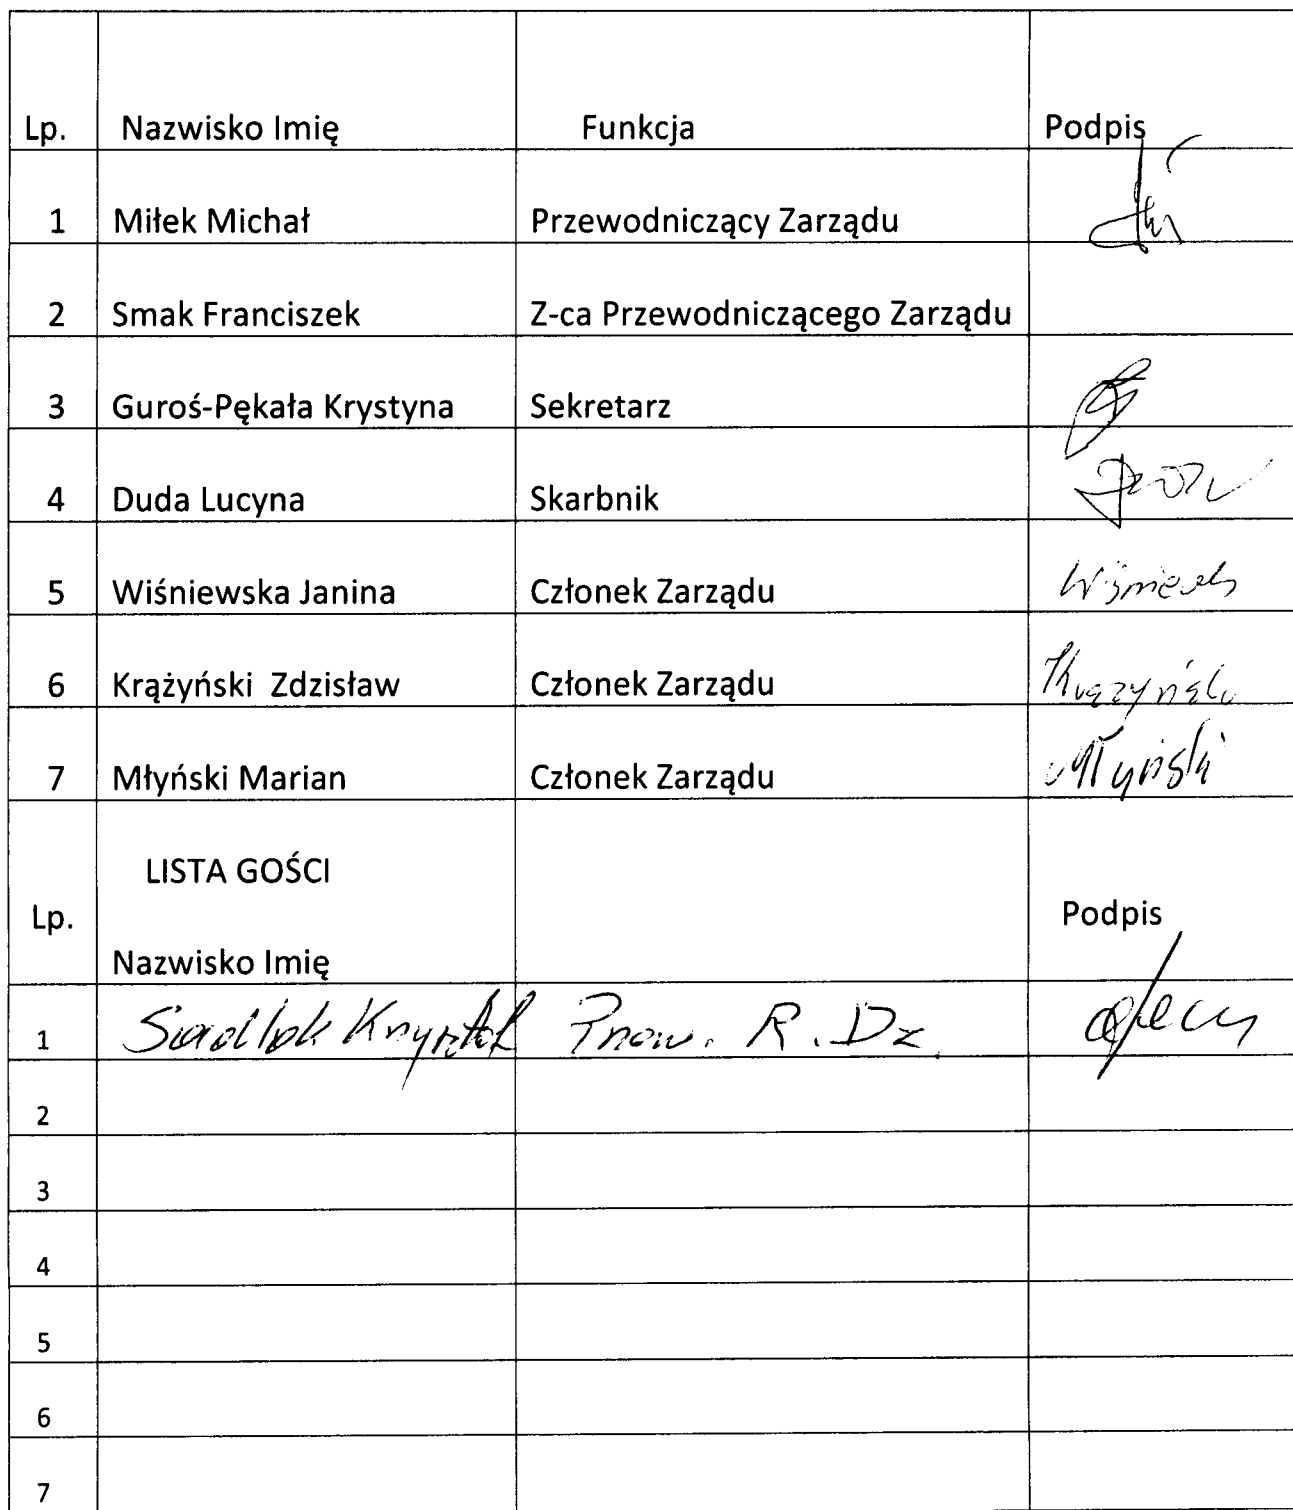 Lp. Nazwisko Imię Funkcja Podpis
1 Miłek Michał Przewodniczący Zarządu
2 Smak Franciszek Z-ca Przewodniczącego Zarządu
3 Guroś-Pękała Krystyna Sekretarz
4 Duda Lucyna Skarbnik
5 Wiśniewska Janina Członek Zarządu
6 Krążyński Zdzisław Członek Zarządu
7 Młyński Marian Członek Zarządu Młyński
LISTA GOŚCI
Lp. Podpis
Nazwisko Imię
1 Sadlok Krzysztof Przew. R. Dz.
2
3
4
5
6
7